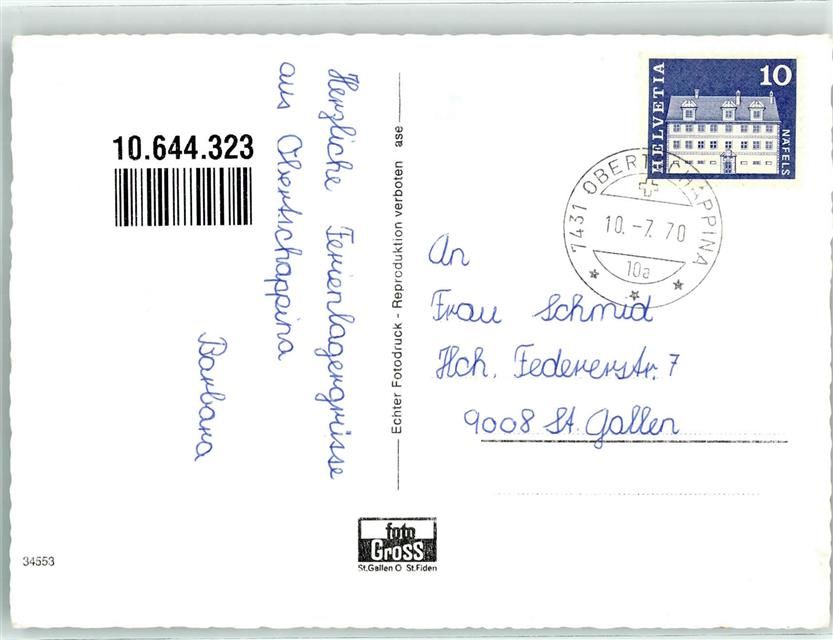 10.644.323
Herzliche Ferienlagergrüsse
aus Obertschappina
Barbara
Echter Fotodruck - Reproduktion verboten ase
HELVETIA
10
NÄFELS
7431 OBERTSCHAPPINA
10.-7.70
10a
An
Frau Schmid
Hch. Federerstr. 7
9008 St. Gallen
foto
Gross
St.Gallen O St.Fiden
34553